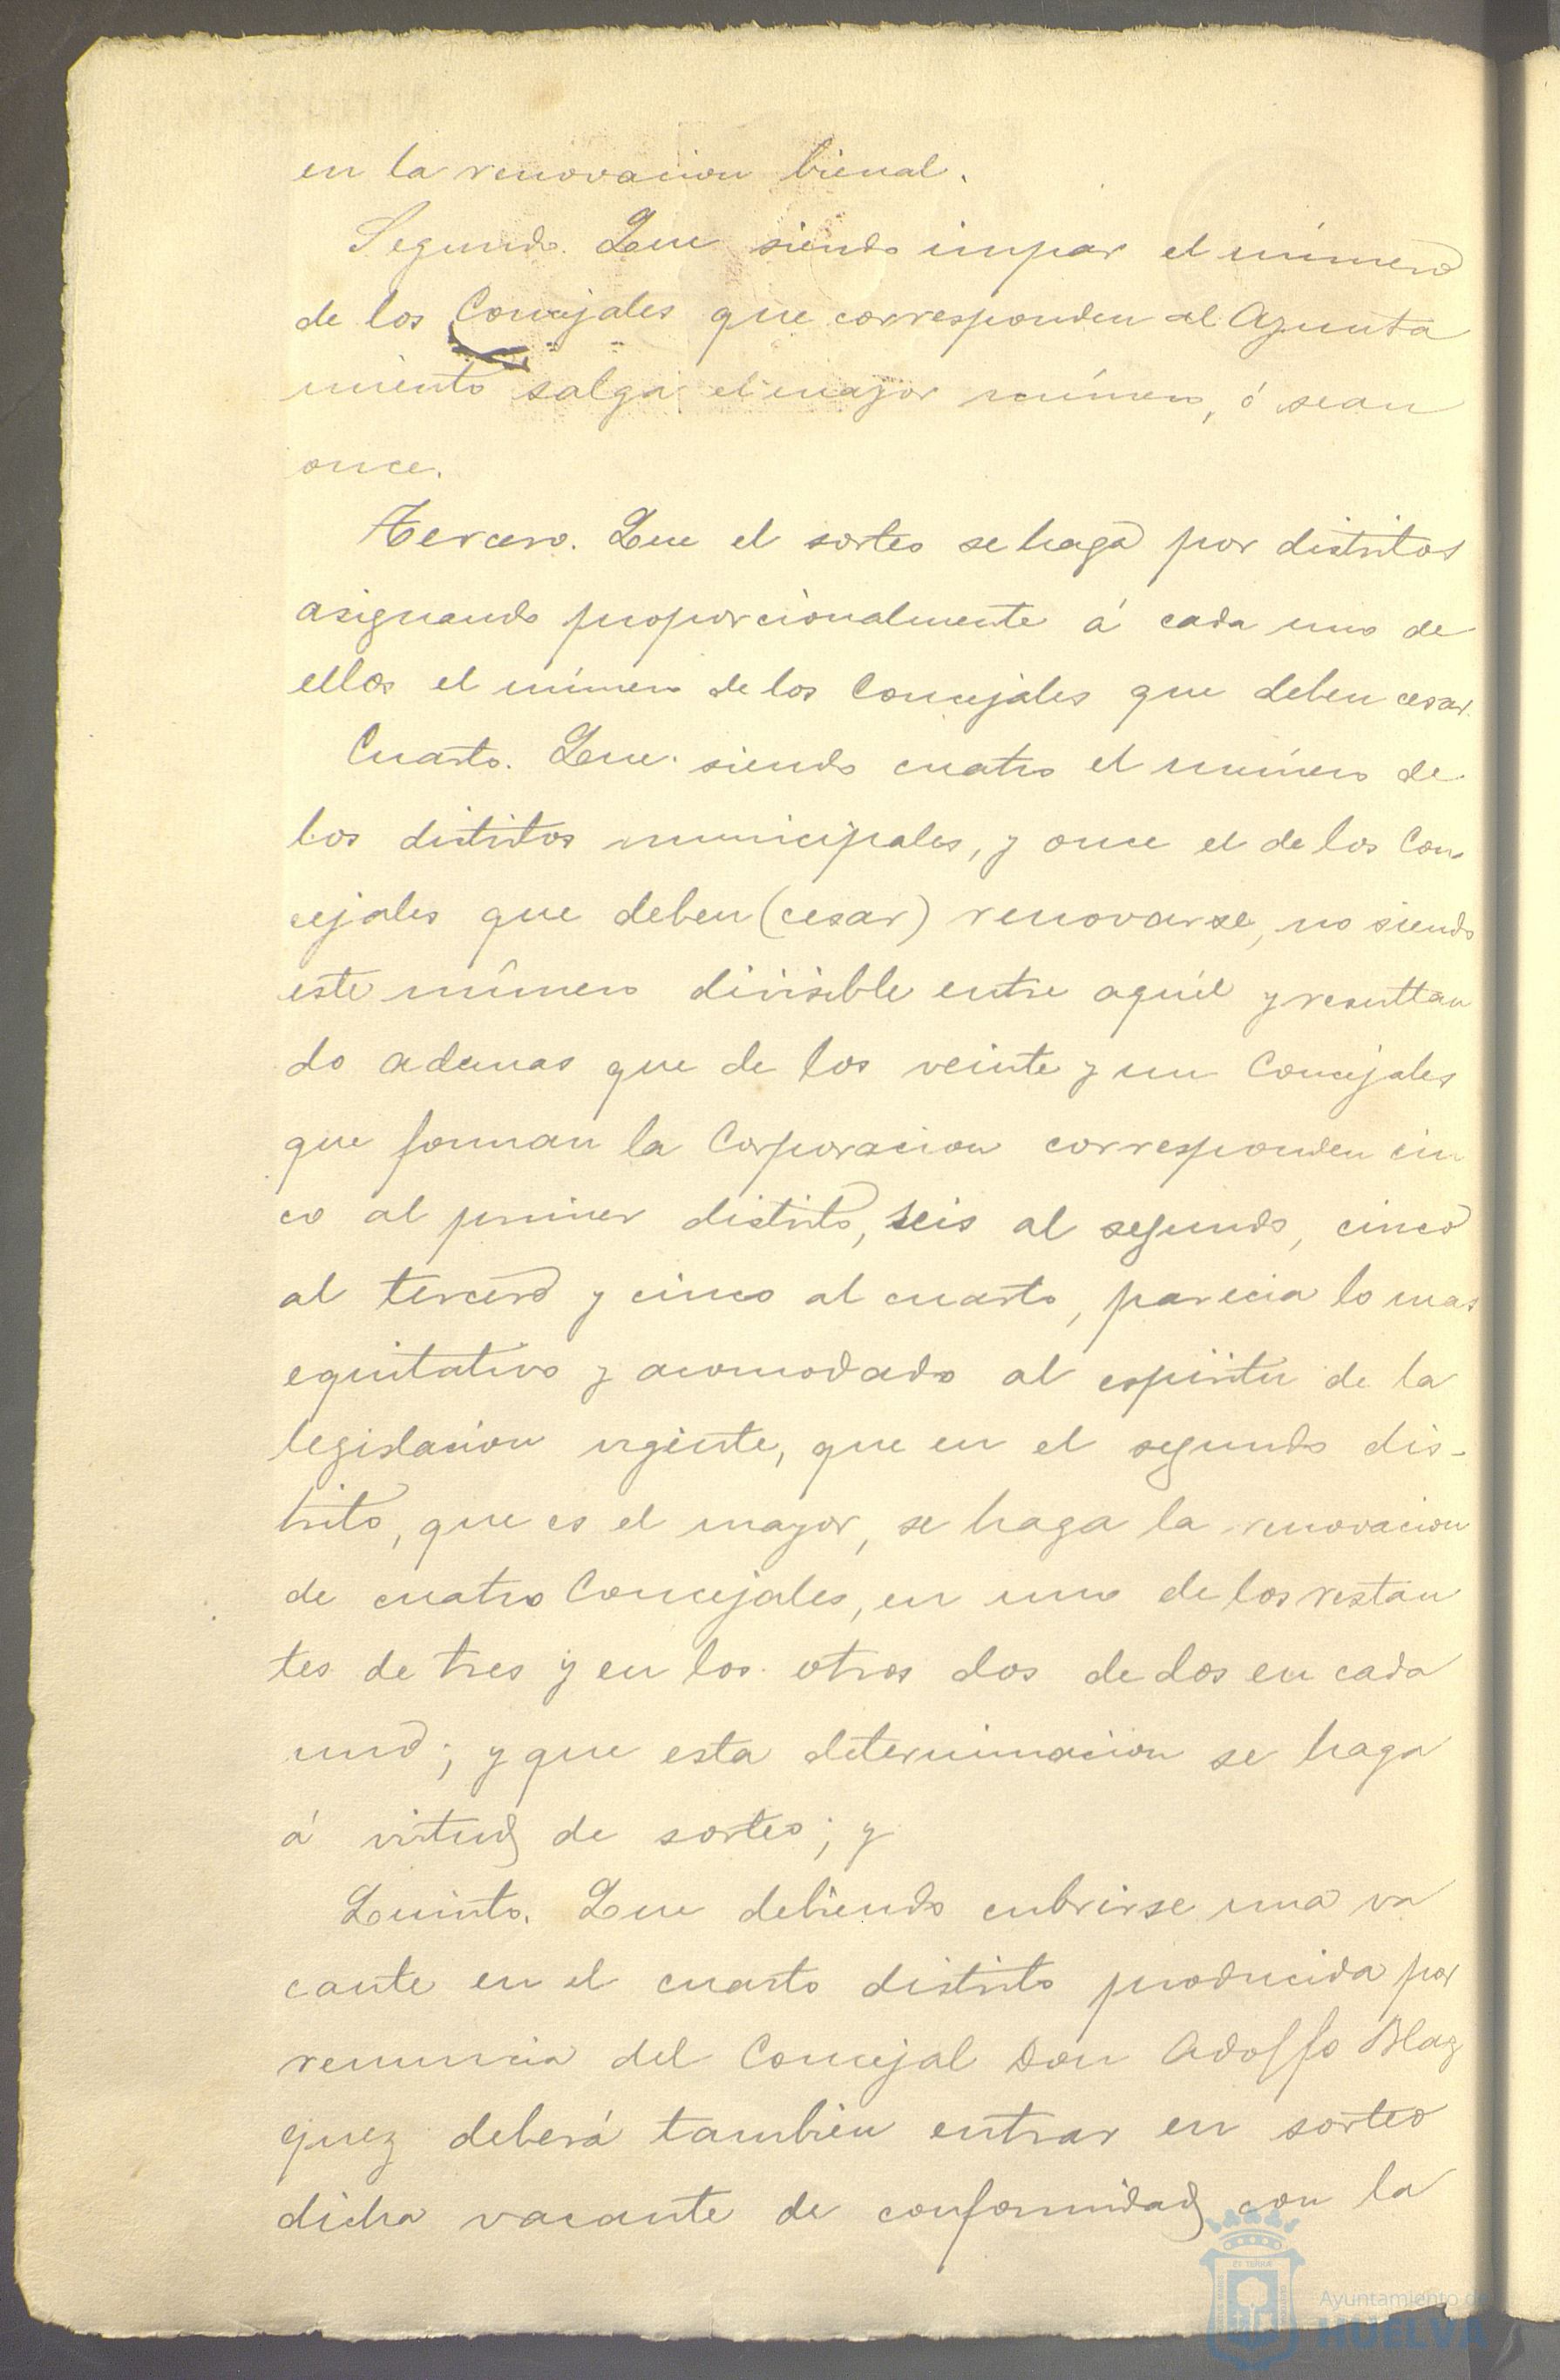 en la renovacion bienal.
Segundo. Que siendo impar el número
de los Concejales que corresponden al Ayunta
miento salga el mayor número, ó sean
once.
Tercero. Que el sorteo se haga por distritos
asignando proporcionalmente á cada uno de
ellos el número de los Concejales que deben cesar.
Cuarto. Que siendo cuatro el número de
los distritos municipales, y once el de los Con-
cejales que deben (cesar) renovarse, no siendo
este número divisible entre aquél y resultan
do ademas que de los veinte y un Concejales
que forman la Corporacion corresponden cin
co al primer distrito, seis al segundo, cinco
al tercero y cinco al cuarto, parecia lo mas
equitativo y acomodado al espiritu de la
legislacion vigente, que en el segundo dis-
trito, que es el mayor, se haga la renovacion
de cuatro Concejales, en uno de los restan
tes de tres y en los otros dos de dos en cada
uno; y que esta determinacion se haga
á virtud de sorteo; y
Quinto. Que debiendo cubrirse una va
cante en el cuarto distrito producida por
renuncia del Concejal Don Adolfo Blaz
quez deberá tambien entrar en sorteo
dicha vacante de conformidad con la
Ayuntamiento de
HUELVA